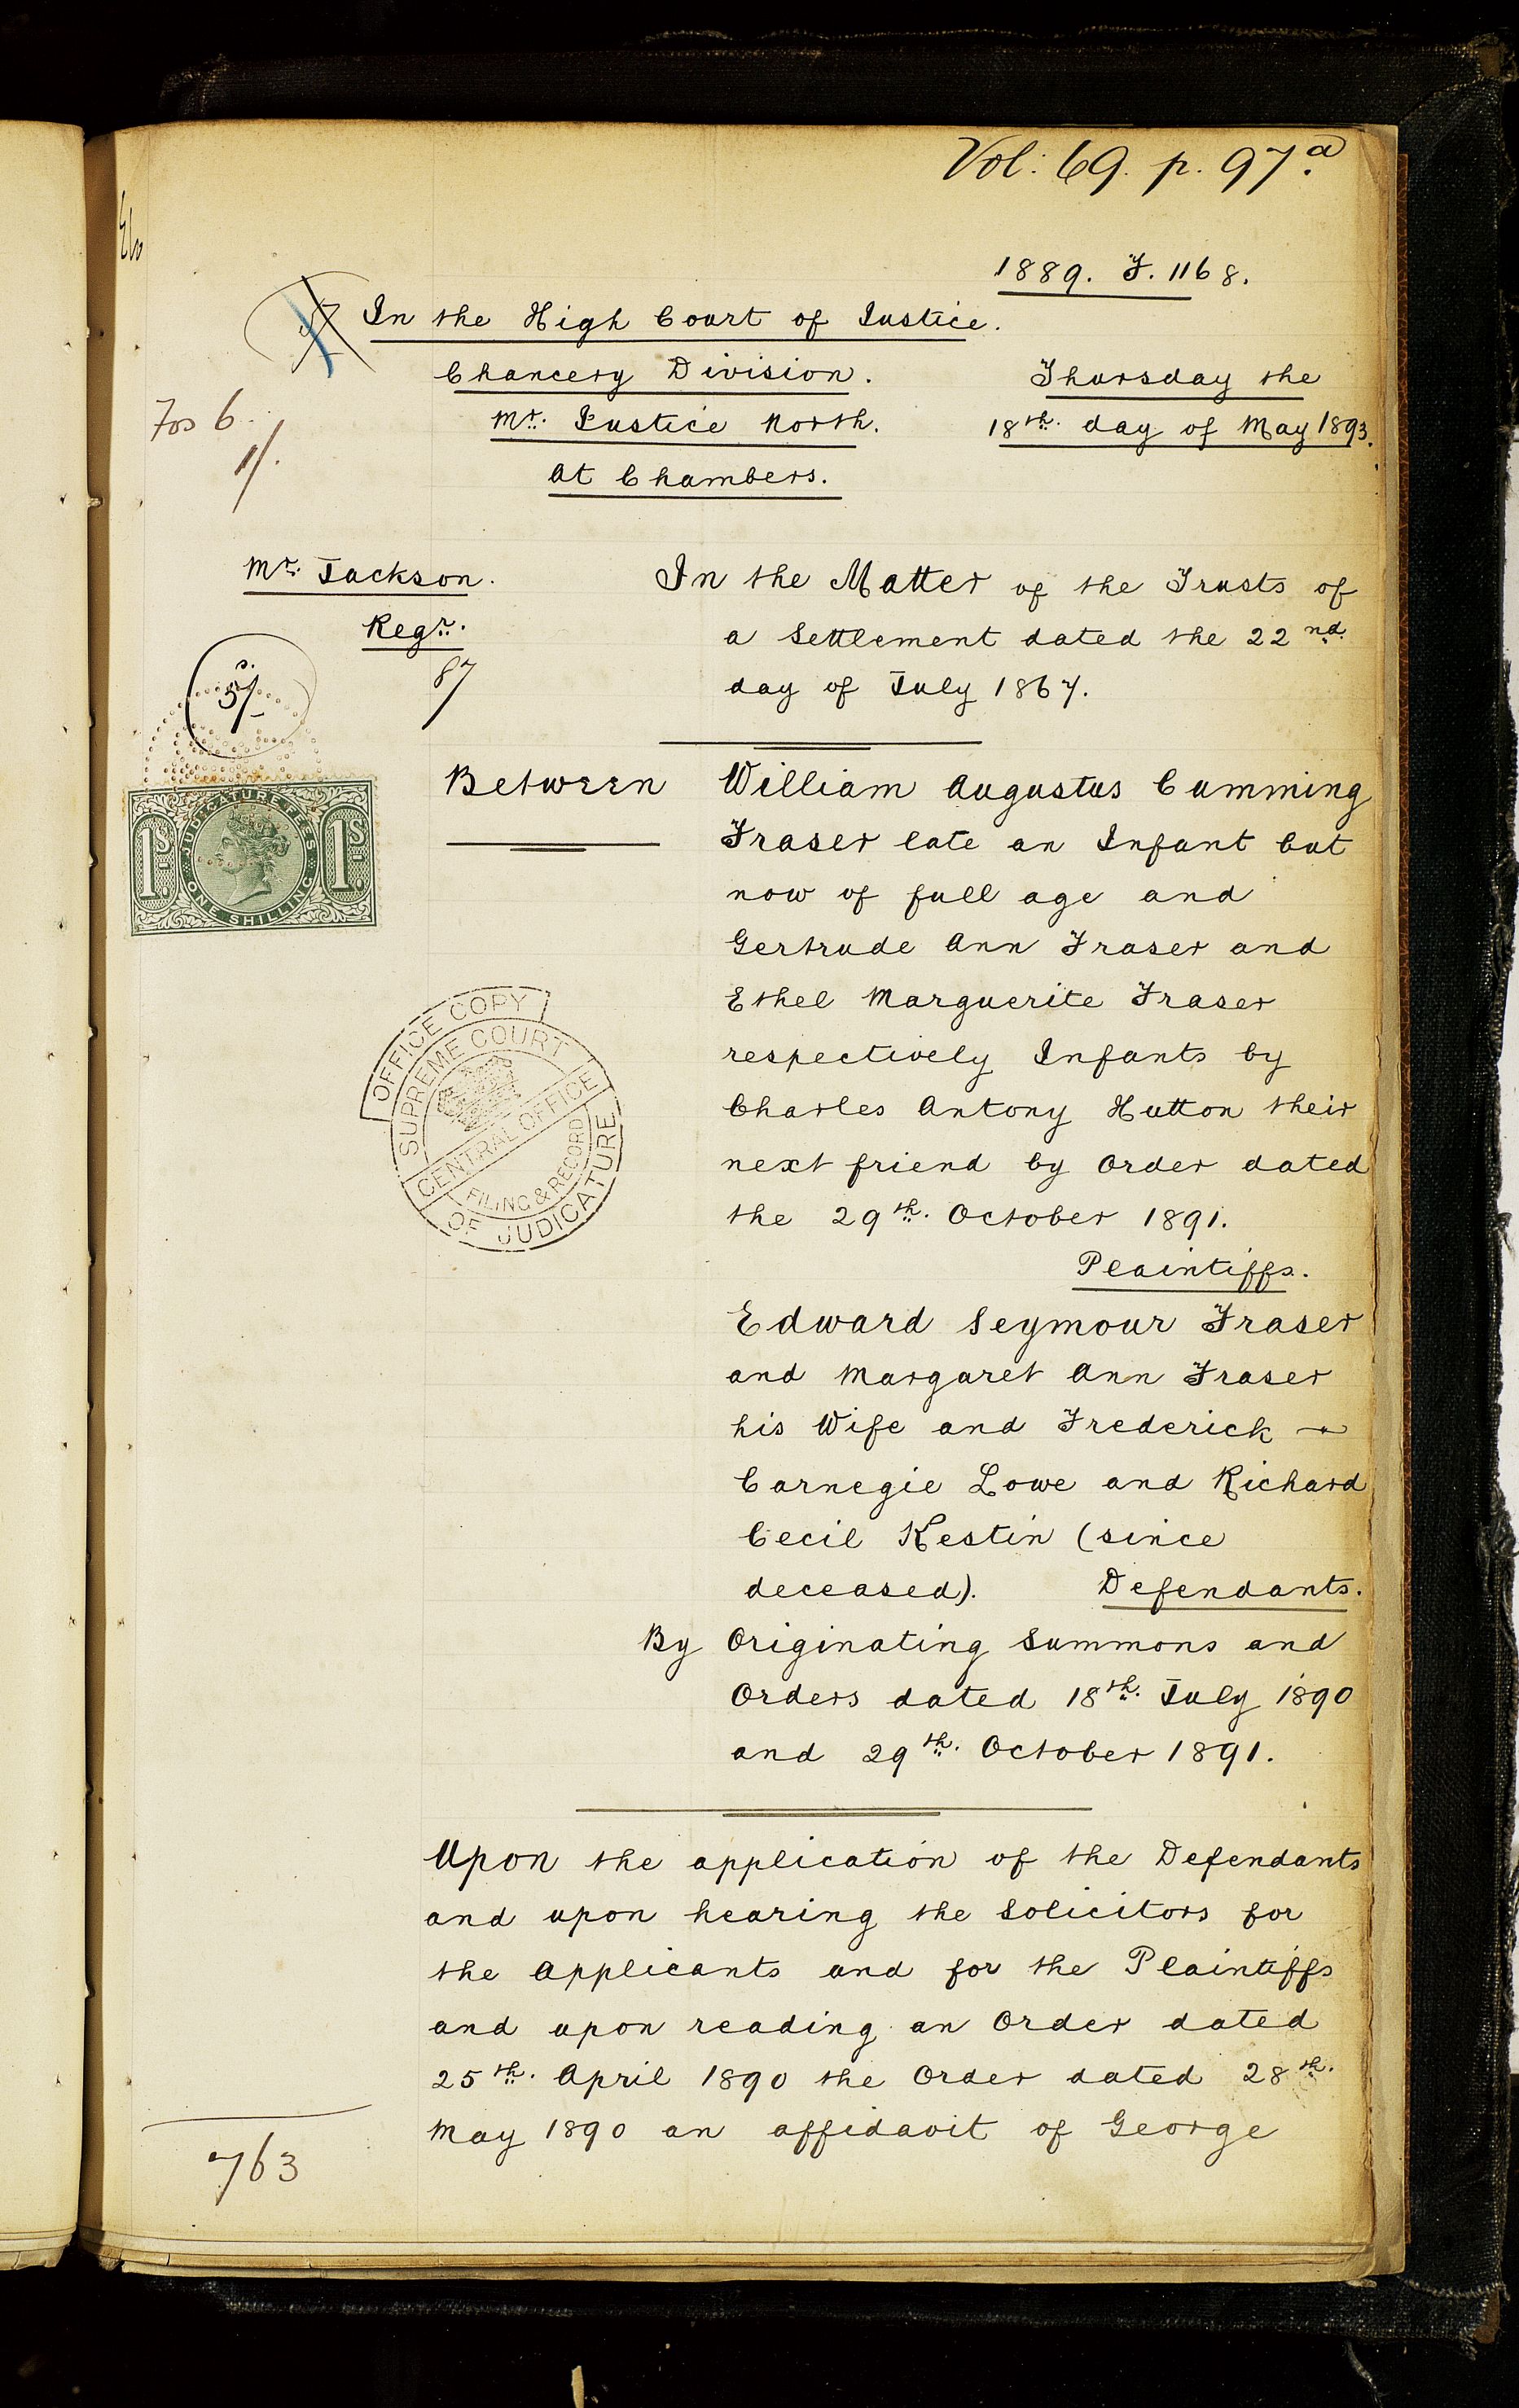 Vol: 69. p. 97.a
1889. F. 1168.
In the High Court of Justice.
Chancery Division. Thursday the
Mr. Justice North. 18th. day of May 1893.
At Chambers.
Fos 6.
1/.
Mr. Jackson.
Regr.
87
5/-
In the Matter of the Trusts of
a Settlement dated the 22nd.
day of July 1867.
JUDICATURE FEES
1S. 1S.
ONE SHILLING
Between William Augustus Cumming
Fraser late an Infant but
now of full age and
Gertrude Ann Fraser and
Ethel Marguerite Fraser
respectively Infants by
Charles Antony Hutton their
next friend by Order dated
the 29th. October 1891.
Plaintiffs.
OFFICE COPY
SUPREME COURT
CENTRAL OFFICE
FILING & RECORD
OF JUDICATURE
Edward Seymour Fraser
and Margaret Ann Fraser
his Wife and Frederick
Carnegie Lowe and Richard
Cecil Kestin (since
deceased). Defendants.
By Originating Summons and
Orders dated 18th. July 1890
and 29th. October 1891.
Upon the application of the Defendants
and upon hearing the Solicitors for
the Applicants and for the Plaintiffs
and upon reading an Order dated
25th. April 1890 the Order dated 28th.
May 1890 an affidavit of George
763